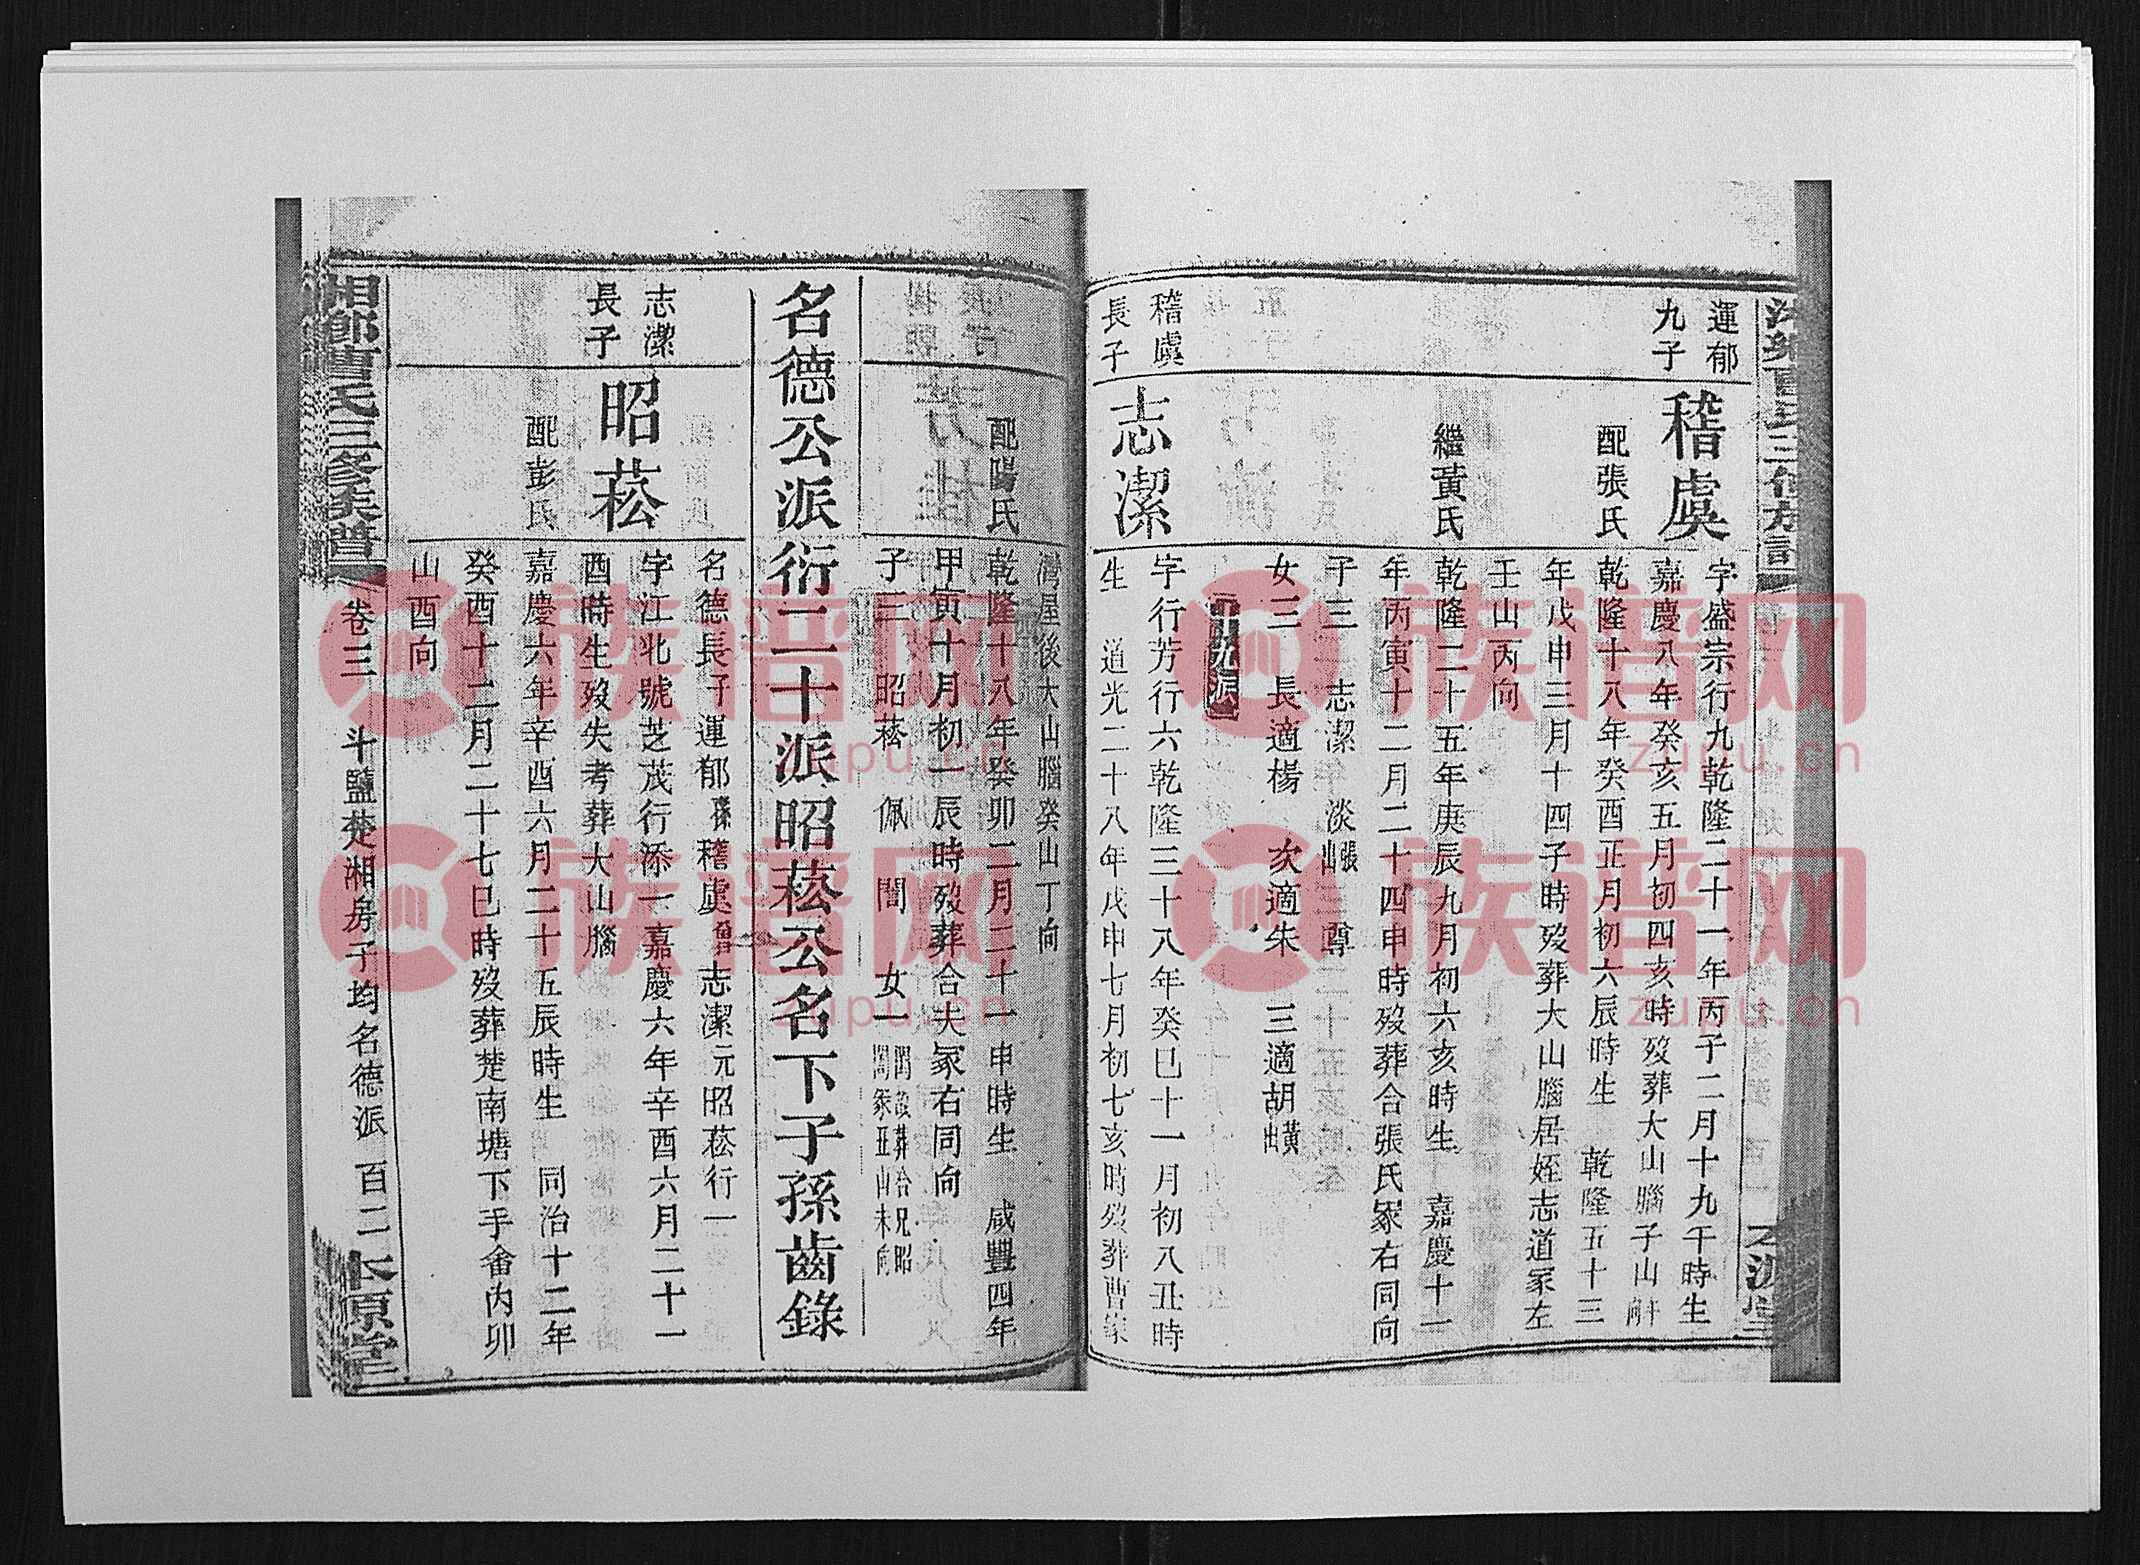 運郁
九子
稽虞
字盛宗行九乾隆二十一年丙子二月十九午時生
嘉慶八年癸亥五月初四亥時歿葬大山腦子山午向
配張氏
乾隆十八年癸酉正月初六辰時生 乾隆五十三
年戊申三月十四子時歿葬大山腦居姪志道冢左
壬山丙向
繼黃氏
乾隆二十五年庚辰九月初六亥時生 嘉慶十一
年丙寅十二月二十四申時歿葬合張氏冢右同向
子三 志潔 淡張出 尊
女三 長適楊 次適朱 三適胡黃出
十九派
稽虞
長子
志潔
字行芳行六乾隆三十八年癸巳十一月初八丑時
生 道光二十八年戊申七月初七亥時歿葬曹家
灣屋後大山腦癸山丁向
配陽氏
乾隆十八年癸卯二月二十一申時生 咸豐四年
甲寅十月初一辰時歿葬合夫冢右同向
子三 昭菘 佩 誾 女一
名德公派衍二十派昭菘公名下子孫齒錄
志潔
長子
昭菘
名德長子運郁孫稽虞曾志潔元昭菘行一
字江北號芝茂行添一嘉慶六年辛酉六月二十一
酉時生歿失考葬大山腦
配彭氏
嘉慶六年辛酉六月二十五辰時生 同治十二年
癸酉十二月二十七巳時歿葬楚南塘下手畬內卯
山酉向
湘鄉曹氏三修族譜
卷三 斗鹽楚湘房子均名德派 百二 本原堂
族谱网
zupu.cn
族谱网
zupu.cn
族谱网
zupu.cn
族谱网
zupu.cn